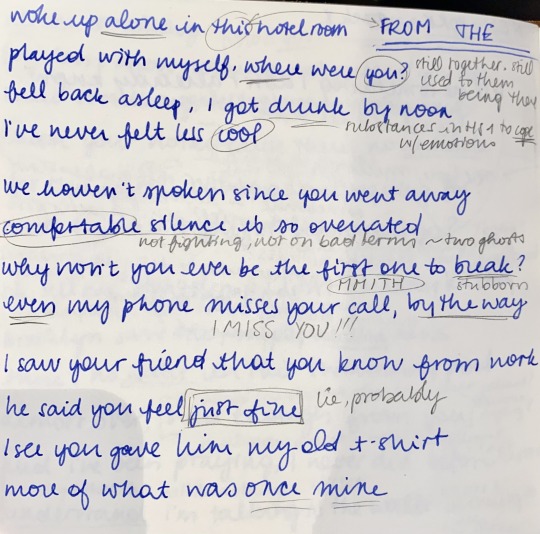 woke up alone in this hotel room
FROM THE
played with myself, where were you?
still together, still
used to them
being there
fell back asleep, I got drunk by noon
substances in HS1 to cope
w/emotions
I've never felt less cool
we haven't spoken since you went away
comfortable silence is so overrated
not fighting, not on bad terms ~ two ghosts
why won't you ever be the first one to break?
MMITH
stubborn
even my phone misses your call, by the way
I MISS YOU!!!
I saw your friend that you know from work
he said you feel just fine
lie, probably
I see you gave him my old t-shirt
more of what was once mine